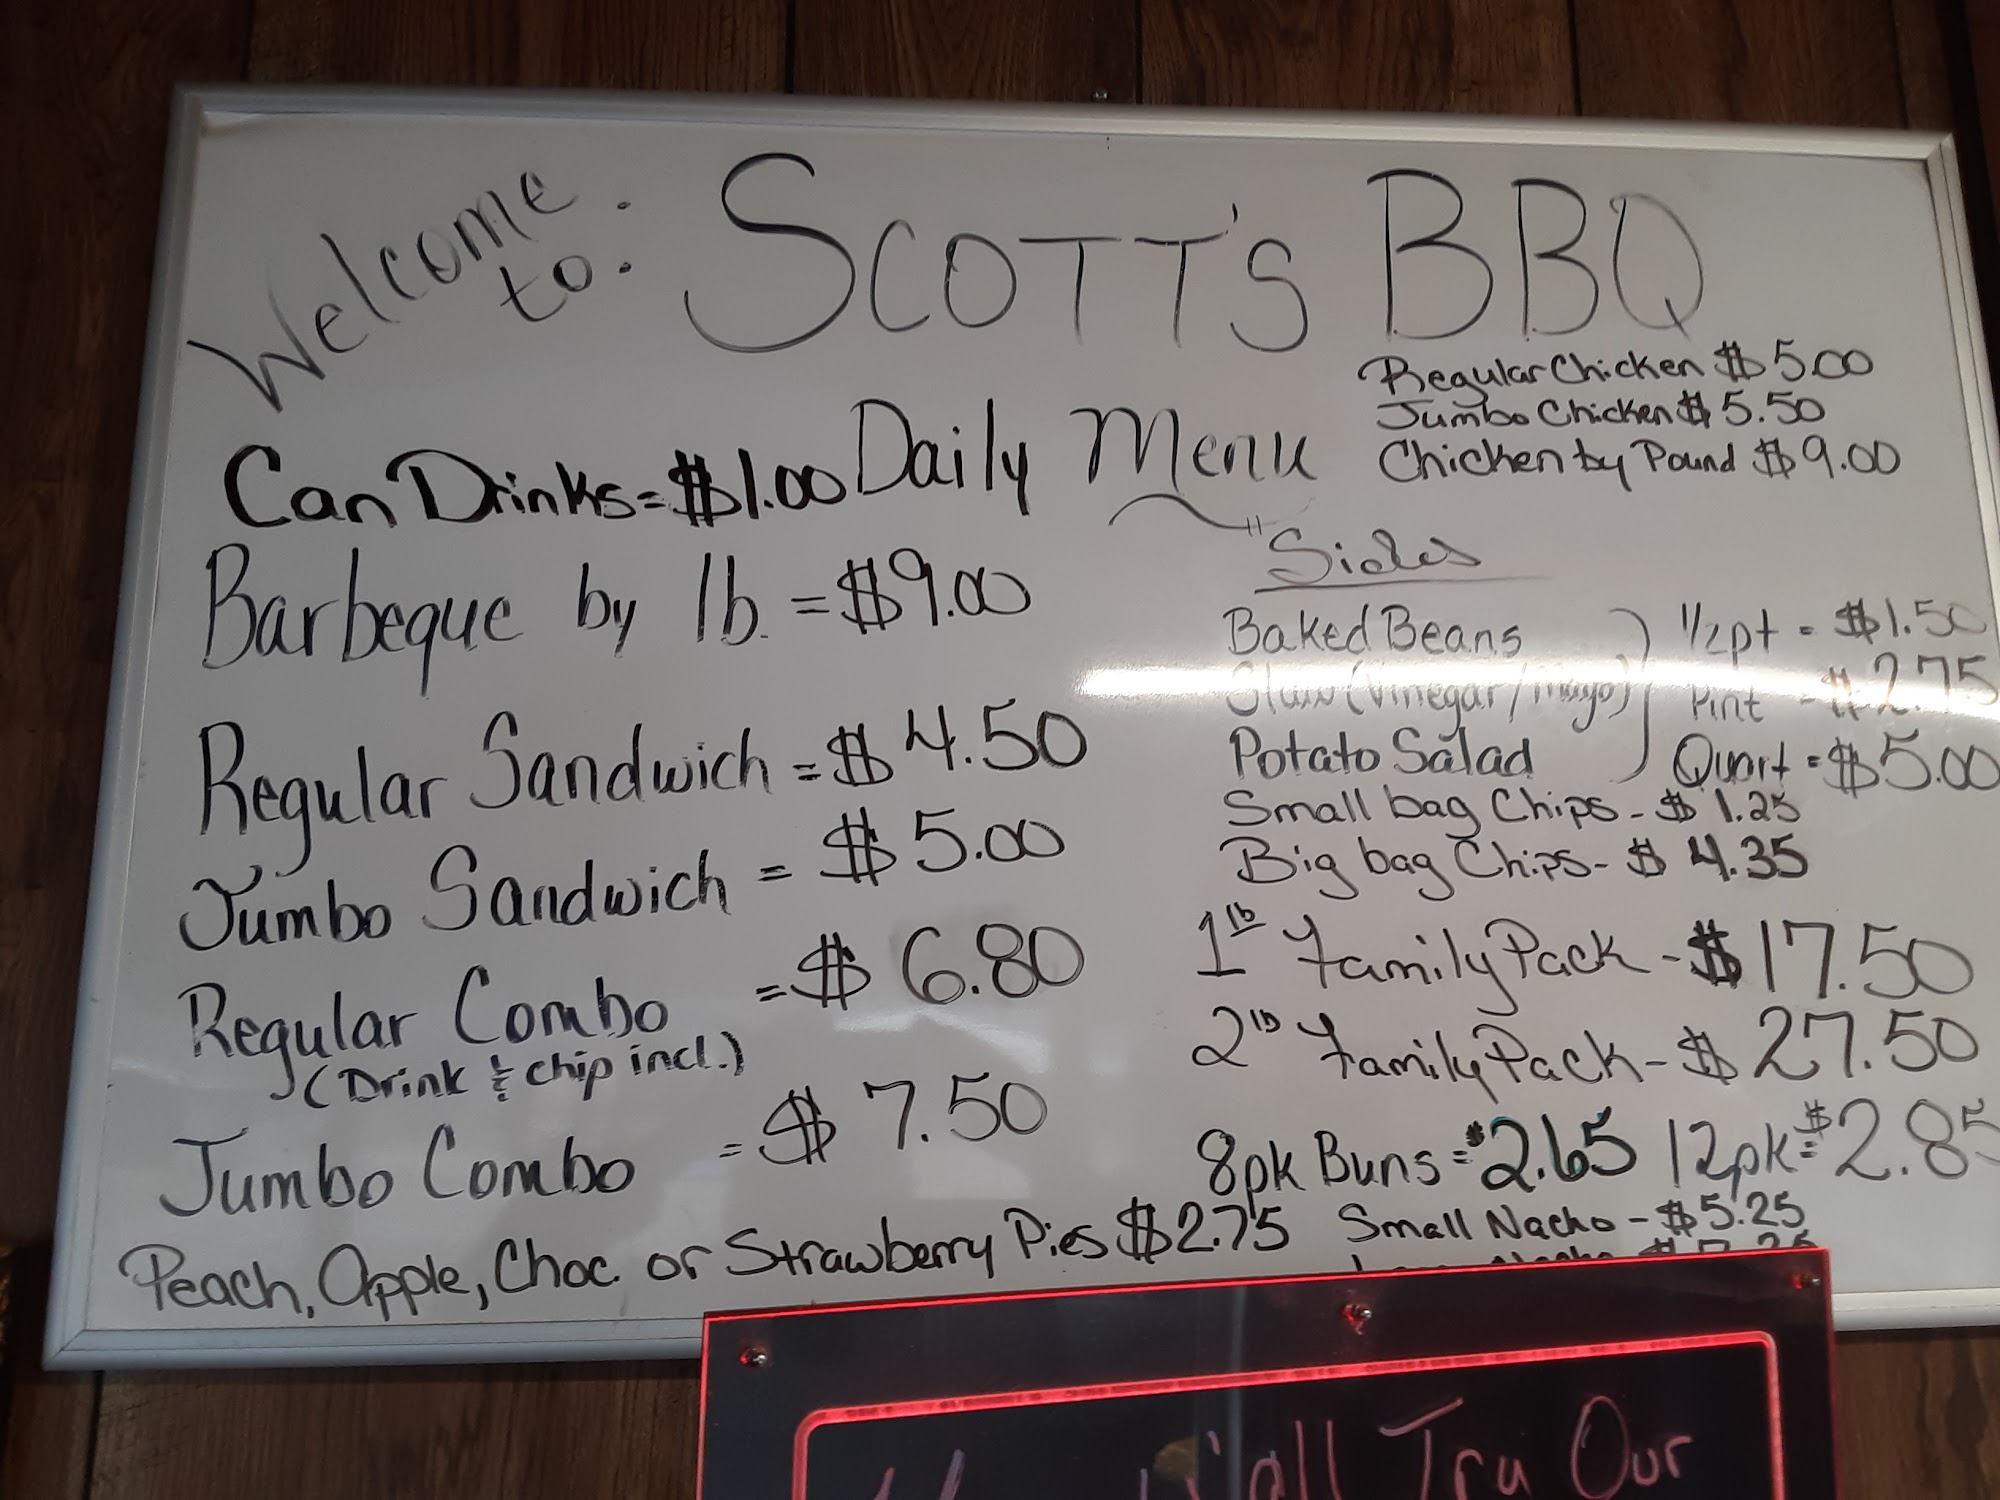 Welcome to: SCOTT'S BBQ
Regular Chicken $5.00
Jumbo Chicken $5.50
Chicken by Pound $9.00
Can Drinks = $1.00
Daily Menu
Barbeque by lb. = $9.00
Regular Sandwich = $4.50
Jumbo Sandwich = $5.00
Regular Combo = $6.80
(Drink & chip incl.)
Jumbo Combo = $7.50
Peach, Apple, Choc. or Strawberry Pies $2.75
"Sides
Baked Beans
Slaw (Vinegar/mayo)
Potato Salad
1/2 pt = $1.50
Pint = $2.75
Quart = $5.00
Small bag Chips - $1.25
Big bag Chips - $4.35
1 lb Family Pack - $17.50
2 lb Family Pack - $27.50
8pk Buns = $2.65 12pk = $2.85
Small Nacho - $5.25
Y'all Try Our